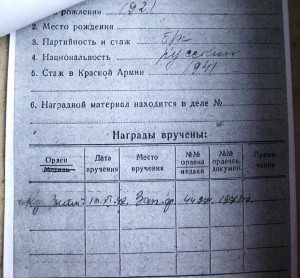 рождения 1921
2. Место рождения
3. Партийность и стаж б/п
4. Национальность русский
5. Стаж в Красной Армии 1941
6. Наградной материал находится в деле №
Награды вручены:
Орден Медаль
Дата вручения
Место вручения
№№ ордена медали
№№ орденск. докумен.
Приме чание
Кр Знам
Зап. ф.